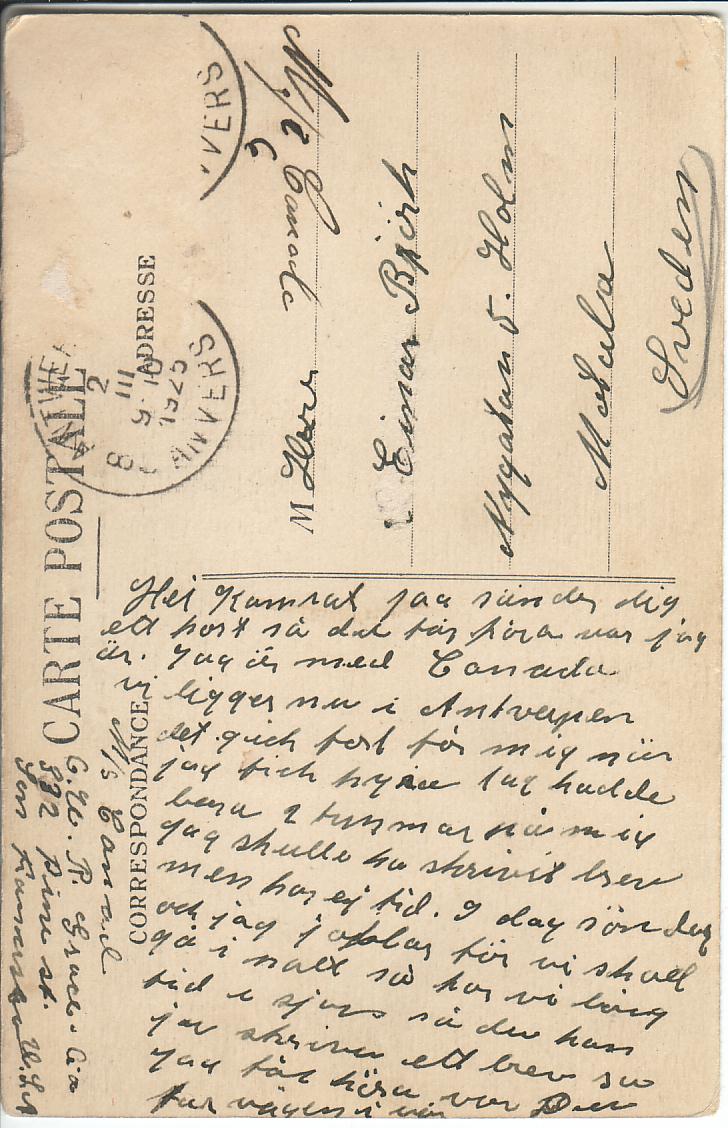 CARTE POSTALE
CORRESPONDANCE
ADRESSE
ANTWERPEN
2
III
9-10
1925
8 ANVERS
VERS
M/S Canada
M Herr
Einar Björk
Nygatan 5. Holm
Motala
Sveden
Hej Kamrat jag sänder dig
ett kort så du får höra var jag
är. Jag är med Canada
vi ligger nu i Antverpen
det gick fort för mig när
jag fick hyra Jag hadde
bara 2 timmar på mig
jag skulle ha skrivit brev
men har ej tid. I dag söndag
och jag jobbar för vi skall
gå i natt så har vi lång
tid i sjön så du kan
skriva ett brev så
Jag får höra var Du
M/S Canada
C. W. R. Grace. Co
332 Pine st.
San Francisco U.S.A